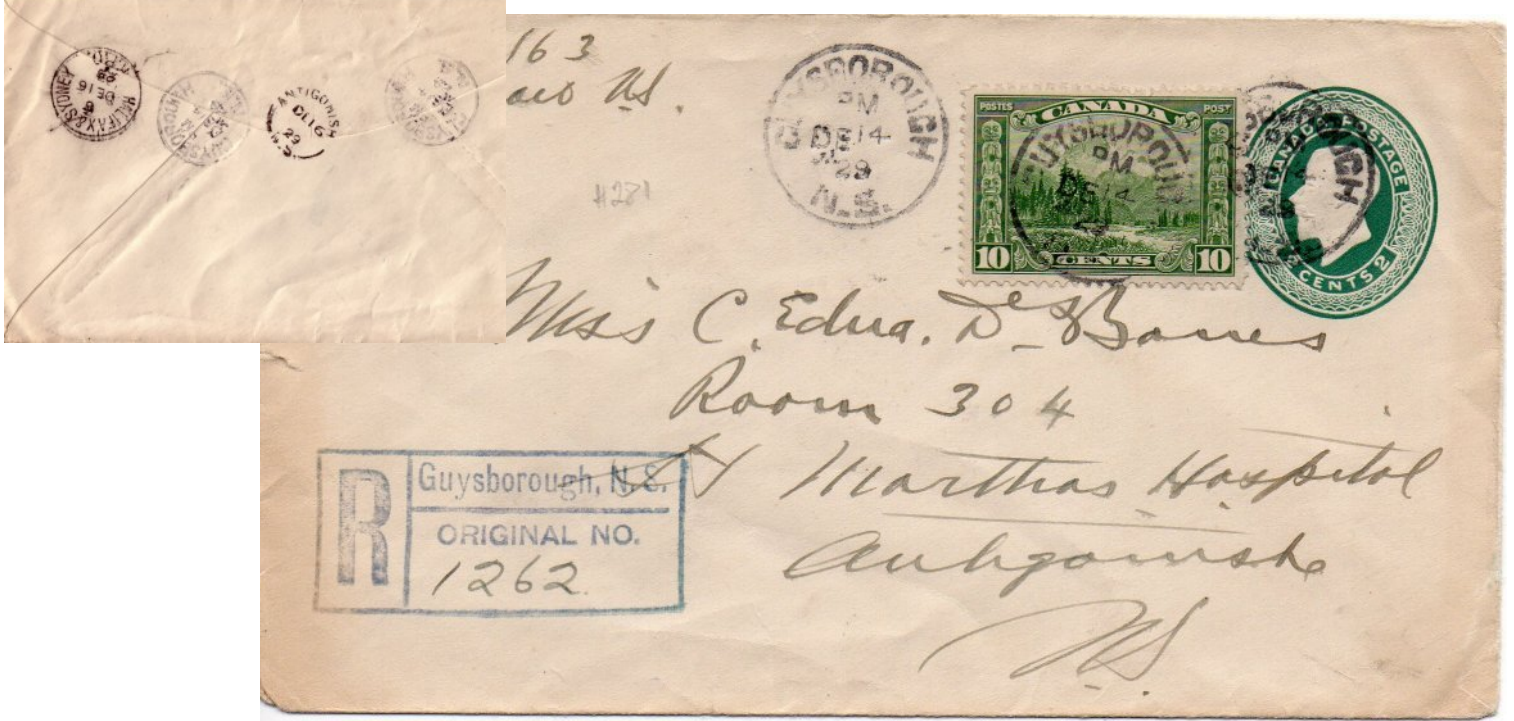 HALIFAX & SYDNEY
DE 16
29
GUYSBOROUGH
ANTIGONISH
DE 16
29
N.S.
GUYSBOROUGH
163
N.S.
#281
GUYSBOROUGH
PM
DE 14
29
N.S.
POSTES CANADA POST
10 CENTS 10
GUYSBOROUGH
PM
DE 14
29
CANADA POSTAGE
2 CENTS 2
Miss C. Edna. DesBarres
Room 304
St Marthas Hospital
Antigonish
N.S.
R
Guysborough, N.S.
ORIGINAL NO.
1262